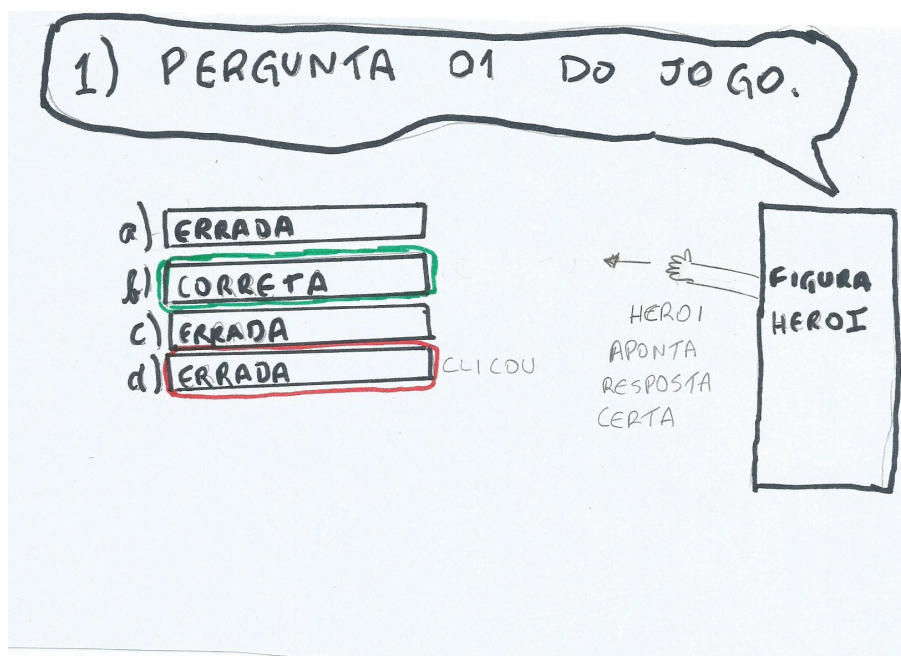 1) PERGUNTA 01 DO JOGO.
a) ERRADA
b) CORRETA
c) ERRADA
d) ERRADA CLICOU
HEROI
APONTA
RESPOSTA
CERTA
FIGURA
HEROI